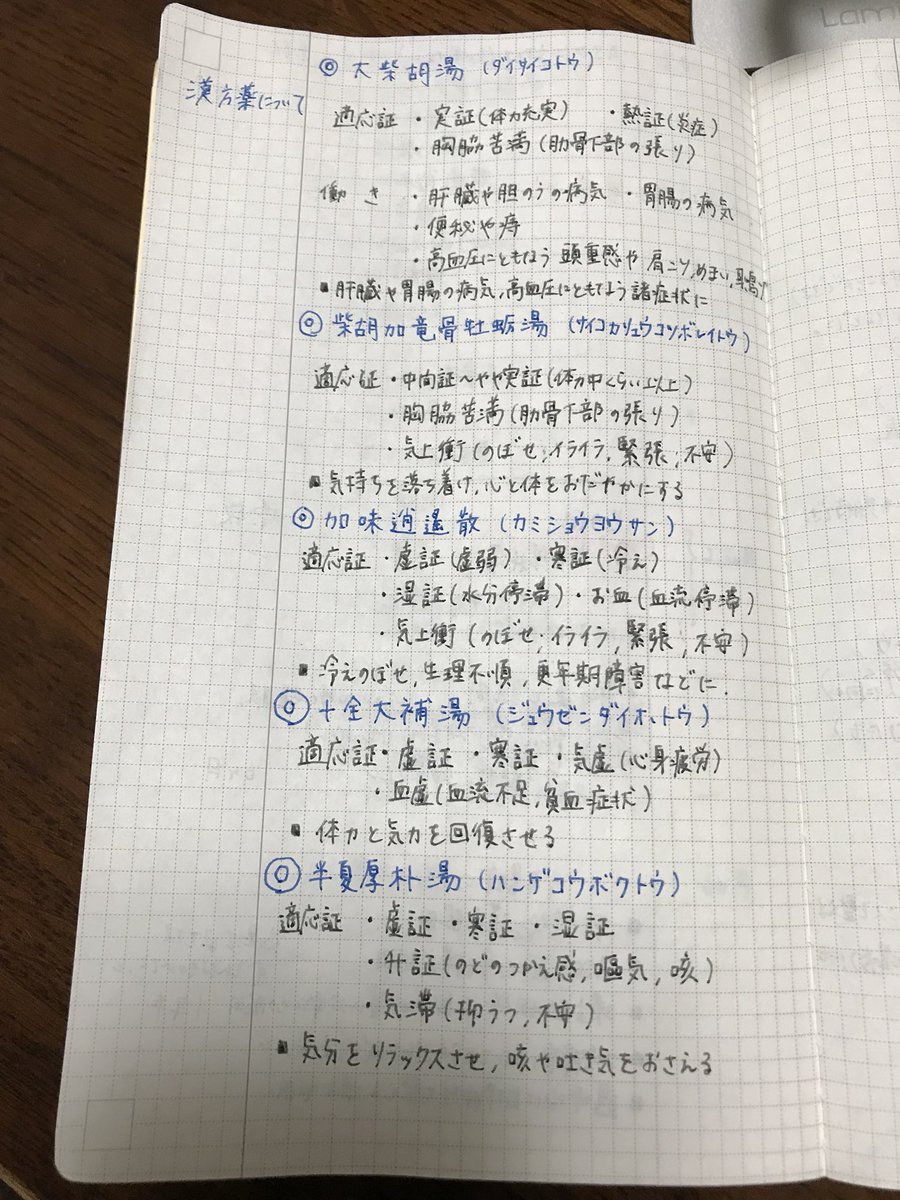 Lam
漢方薬について
◎ 大柴胡湯 (ダイサイコトウ)
適応証 ・実証(体力充実) ・熱証(炎症)
・胸脇苦満(肋骨下部の張り)
働き ・肝臓や胆のうの病気 ・胃腸の病気
・便秘や痔
・高血圧にともなう頭重感や肩こり,めまい,耳鳴り
■肝臓や胃腸の病気,高血圧にともなう諸症状に
◎ 柴胡加竜骨牡蛎湯 (サイコカリュウコツボレイトウ)
適応証 ・中間証〜やや実証(体力中くらい以上)
・胸脇苦満(肋骨下部の張り)
・気上衝(のぼせ,イライラ,緊張,不安)
■気持ちを落ち着け,心と体をおだやかにする
◎ 加味逍遥散 (カミショウヨウサン)
適応証 ・虚証(虚弱) ・寒証(冷え)
・湿証(水分停滞) ・お血(血流停滞)
・気上衝(のぼせ,イライラ,緊張,不安)
■冷えのぼせ,生理不順,更年期障害などに.
◎ 十全大補湯 (ジュウゼンダイホトウ)
適応証・虚証 ・寒証 ・気虚(心身疲労)
・血虚(血流不足,貧血症状)
■体力と気力を回復させる
◎ 半夏厚朴湯 (ハンゲコウボクトウ)
適応証 ・虚証 ・寒証 ・湿証
・升証(のどのつかえ感,嘔気,咳)
・気滞(抑うつ,不安)
■気分をリラックスさせ,咳や吐き気をおさえる